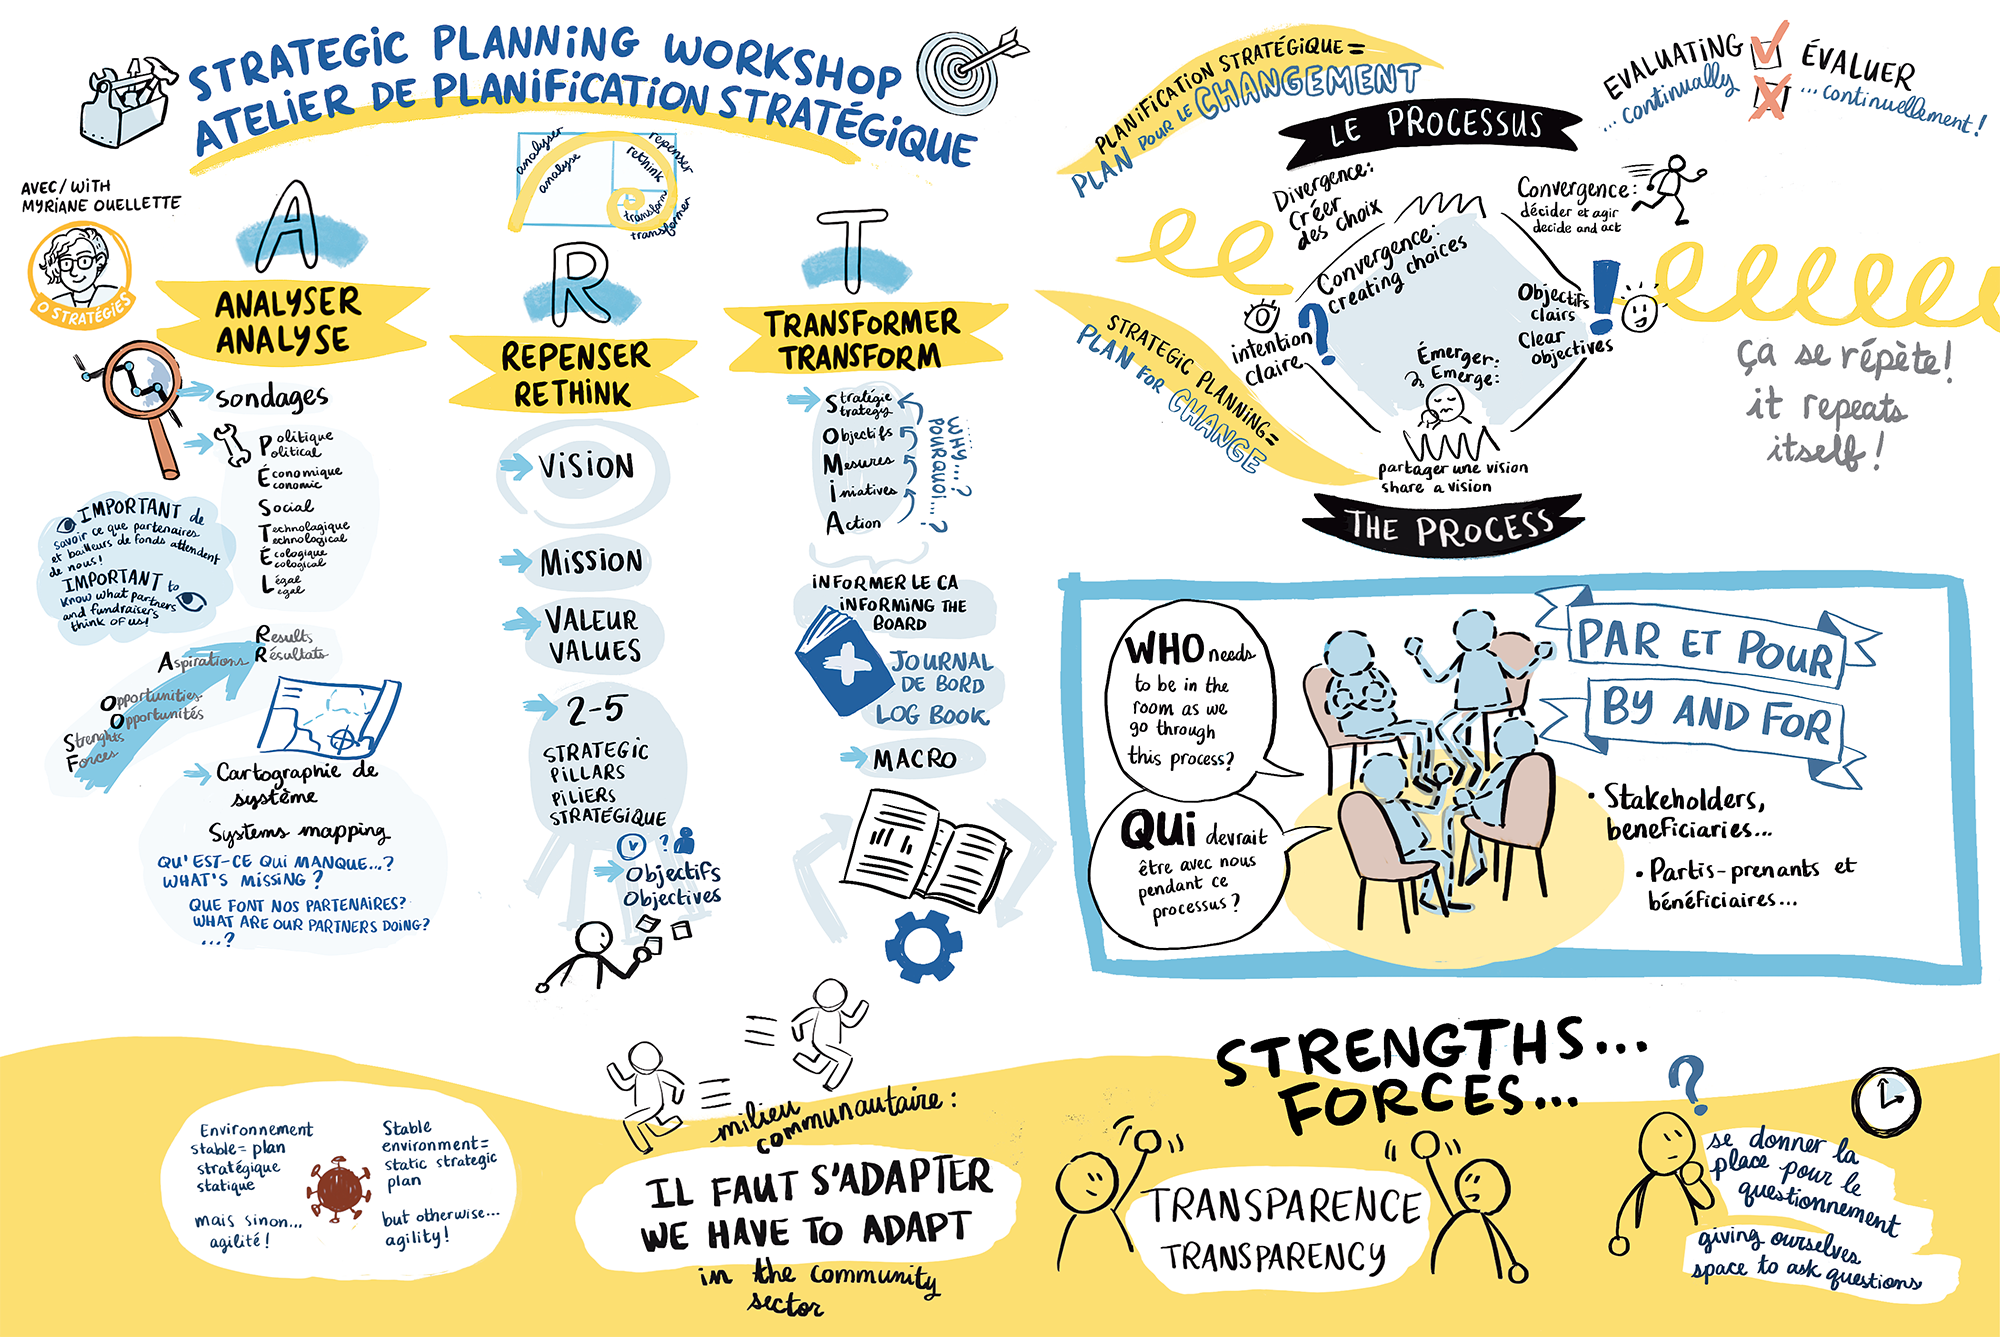 STRATEGIC PLANNING WORKSHOP
ATELIER DE PLANIFICATION STRATÉGIQUE
AVEC/WITH
MYRIANE OUELLETTE
O STRATÉGIES
A
ANALYSER
ANALYSE
Sondages
Politique
Political
Économique
Economic
Social
Technologique
Technological
Écologique
Ecological
Légal
Legal
IMPORTANT de
savoir ce que partenaires
et bailleurs de fonds attendent
de nous!
IMPORTANT to
know what partners
and fundraisers
think of us!
Results
Résultats
Aspirations
Opportunities
Opportunités
Strenghts
Forces
Cartographie de
système
Systems mapping
QU'EST-CE QUI MANQUE...?
WHAT'S MISSING?
QUE FONT NOS PARTENAIRES?
WHAT ARE OUR PARTNERS DOING?
...?
analyser
analyse
repenser
rethink
transform
transformer
R
REPENSER
RETHINK
VISION
MISSION
VALEUR
VALUES
2-5
STRATEGIC
PILLARS
PILIERS
STRATÉGIQUE
?
Objectifs
Objectives
T
TRANSFORMER
TRANSFORM
Stratégie
Strategy
Objectifs
Mesures
Iniatives
Action
WHY...?
POURQUOI...?
INFORMER LE CA
INFORMING THE
BOARD
JOURNAL
DE BORD
LOG BOOK
MACRO
PLANIFICATION STRATÉGIQUE=
PLAN POUR LE CHANGEMENT
EVALUATING
...continually
ÉVALUER
...continuellement!
LE PROCESSUS
Divergence:
Créer
des choix
Convergence:
creating choices
Convergence:
décider et agir
decide and act
intention
claire
?
Objectifs
clairs
Clear
objectives
!
Émerger:
Emerge:
partager une vision
share a vision
THE PROCESS
STRATEGIC PLANNING=
PLAN FOR CHANGE
ça se répète!
it repeats
itself!
WHO needs
to be in the
room as we
go through
this process?
QUI devrait
être avec nous
pendant ce
processus?
PAR ET POUR
BY AND FOR
• Stakeholders,
beneficiaries...
• Partis-prenants et
bénéficiaires...
Environnement
stable= plan
stratégique
statique
mais sinon...
agilité!
Stable
environment=
static strategic
plan
but otherwise...
agility!
milieu
communautaire:
IL FAUT S'ADAPTER
WE HAVE TO ADAPT
in the community
sector
STRENGTHS...
FORCES...
TRANSPARENCE
TRANSPARENCY
?
se donner la
place pour le
questionnement
giving ourselves
space to ask questions